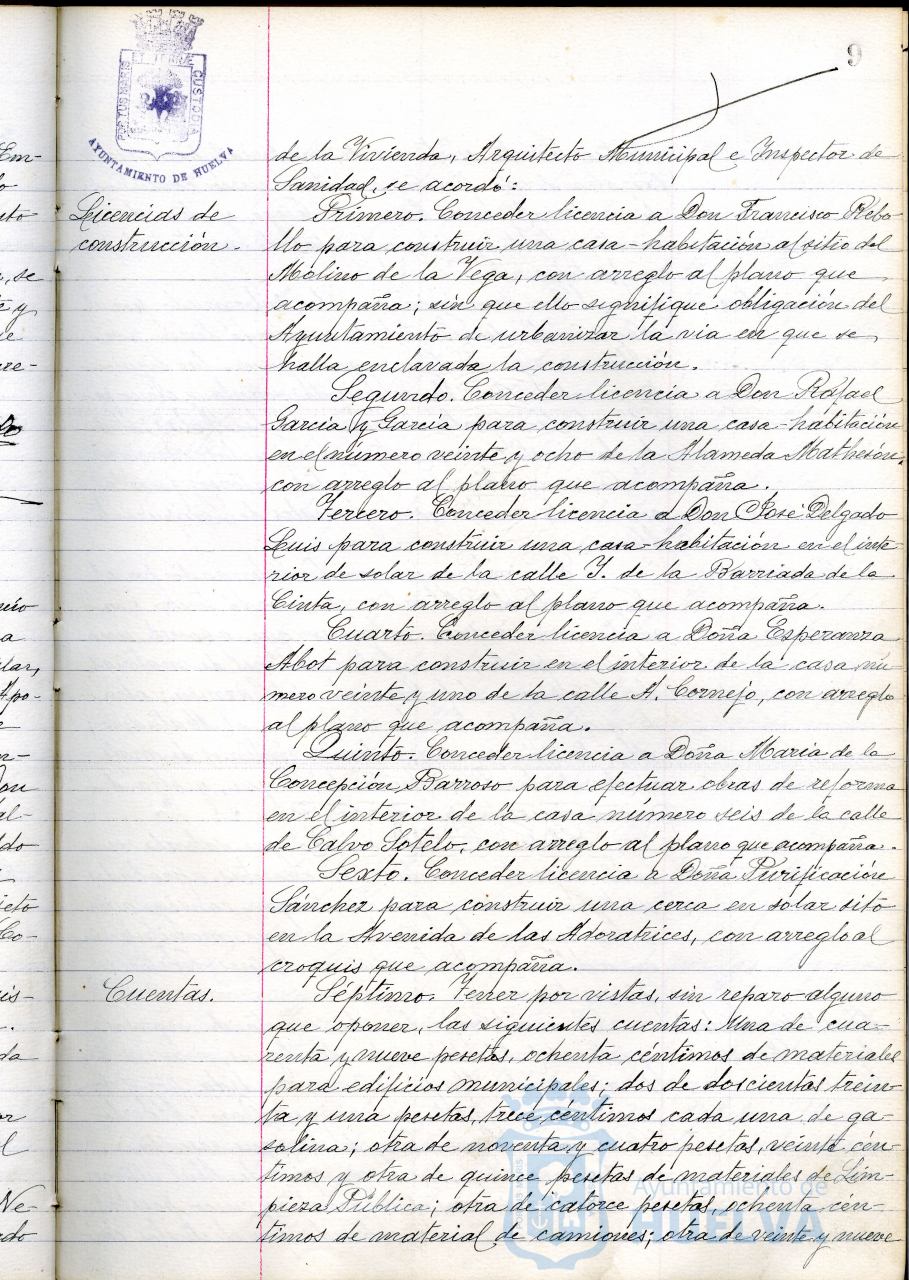 9
PORTUS MARIS
ET TERRÆ
CUSTODIA
AYUNTAMIENTO DE HUELVA
de la Vivienda, Arquitecto Municipal e Inspector de
Sanidad, se acordó:
Licencias de
construcción.
Primero. Conceder licencia a Don Francisco Rebo-
llo para construir una casa-habitación al sitio del
Molino de la Vega, con arreglo al plano que
acompaña; sin que ello signifique obligación del
Ayuntamiento de urbanizar la via en que se
halla enclavada la construcción.
Segundo. Conceder licencia a Don Rafael
García y García para construir una casa-habitación
en el número veinte y ocho de la Alameda Mathesón,
con arreglo al plano que acompaña.
Tercero. Conceder licencia a Don José Delgado
Luis para construir una casa-habitación en el inte-
rior de solar de la calle Y. de la Barriada de la
Cinta, con arreglo al plano que acompaña.
Cuarto. Conceder licencia a Doña Esperanza
Abot para construir en el interior de la casa nú-
mero veinte y uno de la calle A. Cornejo, con arreglo
al plano que acompaña.
Quinto. Conceder licencia a Doña María de la
Concepción Barroso para efectuar obras de reforma
en el interior de la casa número seis de la calle
de Calvo Sotelo, con arreglo al plano que acompaña.
Sexto. Conceder licencia a Doña Purificación
Sánchez para construir una cerca en solar sito
en la Avenida de las Adoratrices, con arreglo al
croquis que acompaña.
Cuentas.
Séptimo. Tener por vistas, sin reparo alguno
que oponer, las siguientes cuentas: Una de cua-
renta y nueve pesetas, ochenta céntimos de materiales
para edificios municipales; dos de doscientas trein-
ta y una pesetas, trece céntimos cada una de ga-
solina; otra de noventa y cuatro pesetas, veinte cén-
timos y otra de quince pesetas de materiales de Lim-
pieza Pública; otra de catorce pesetas, ochenta cén-
timos de material de camiones; otra de veinte y nueve
Ayuntamiento de
HUELVA